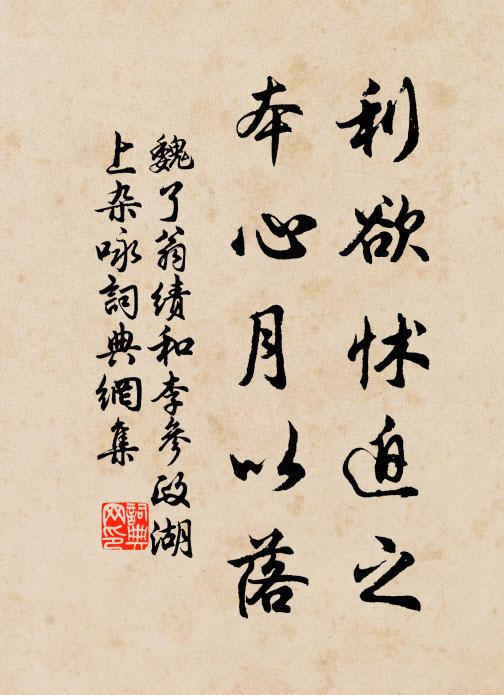 利欲怵迫之
本心月以落
魏了翁績和李參政湖
上杂咏詞典網集
詞典
网印